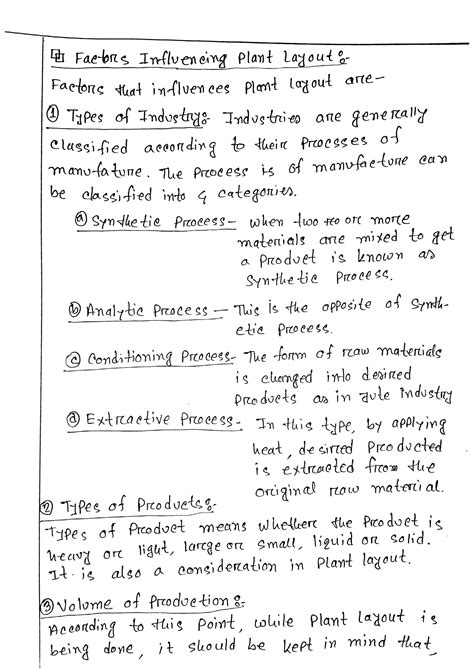 Factors Influencing Plant Layout:
Factors that influences Plant layout are-
① Types of Industry:- Industries are generally
classified according to their Processes of
manufature. The Process is of manufacture can
be classified into 4 categories.
ⓐ Synthetic Process- when two or more
materials are mixed to get
a Product is known as
Synthetic Process.
ⓑ Analytic Process - This is the opposite of Synth-
etic Process.
ⓒ Conditioning Process- The form of raw materials
is changed into desired
Products as in Jute industry
ⓓ Extractive Process- In this type, by applying
heat, desired Producted
is extracted from the
original raw material.
② Types of Products:-
Types of Product means whether the Product is
heavy or light, large or small, liquid or solid.
It is also a consideration in Plant layout.
③ Volume of Production:-
According to this Point, while Plant layout is
being done, it should be kept in mind that